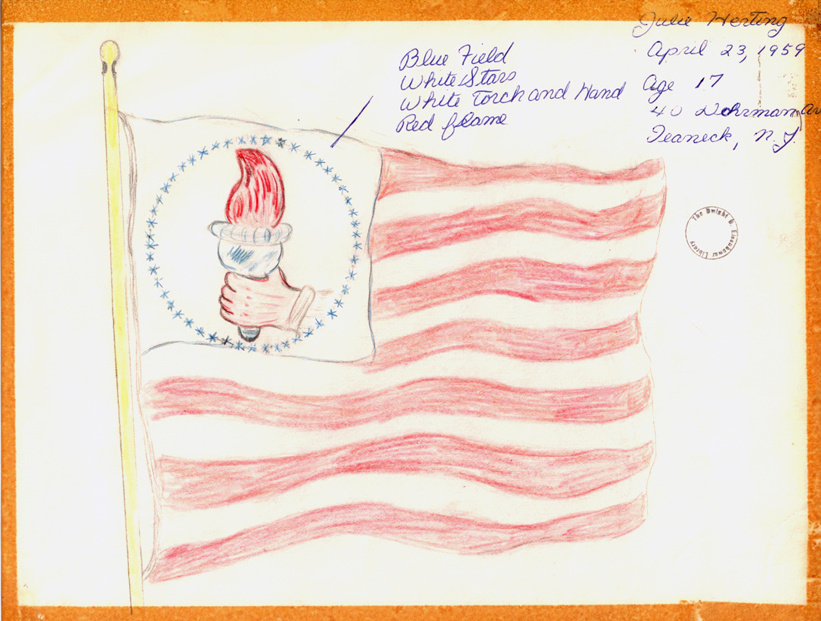 Julie Herting
April 23, 1959
Age 17
40 Dohrman Av
Teaneck, N.J.
Blue Field
White Stars
White Torch and Hand
Red flame
The Dwight D. Eisenhower Library